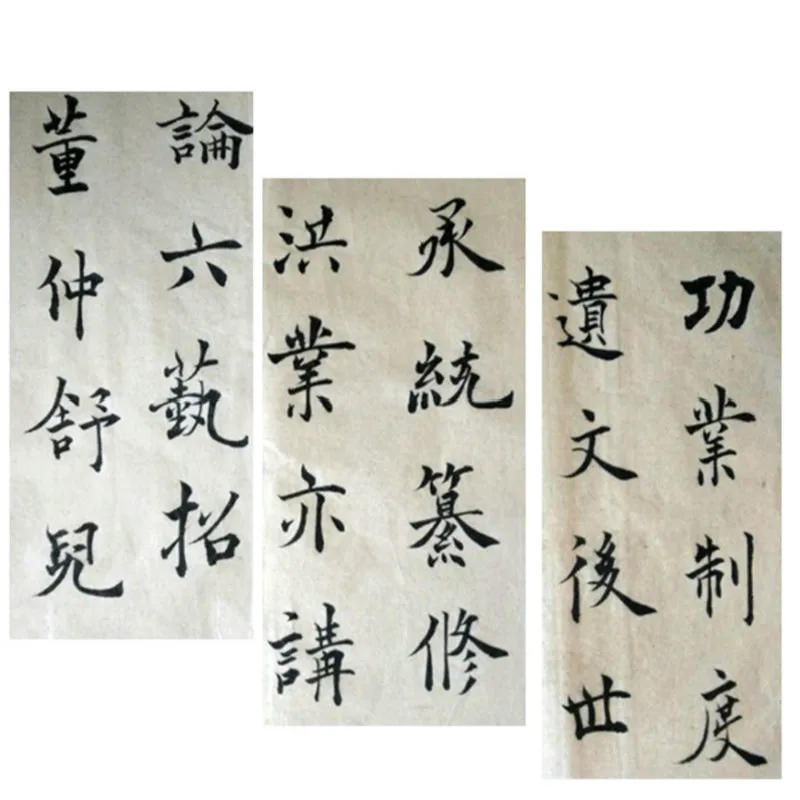 功業制度
遺文後世
承統纂修
洪業亦講
論六蓺招
董仲舒兒